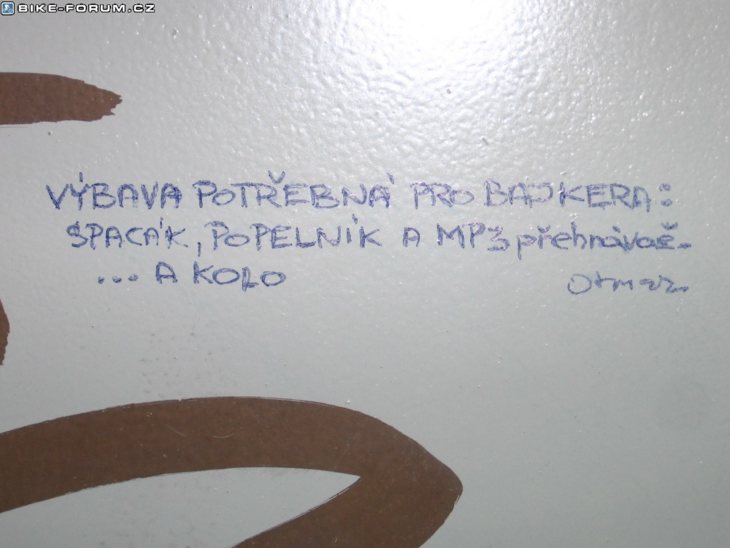 BIKE-FORUM.CZ
VÝBAVA POTŘEBNÁ PRO BAJKERA:
SPACÁK, POPELNÍK A MP3 přehrávač.
... A KOLO
Otmar.